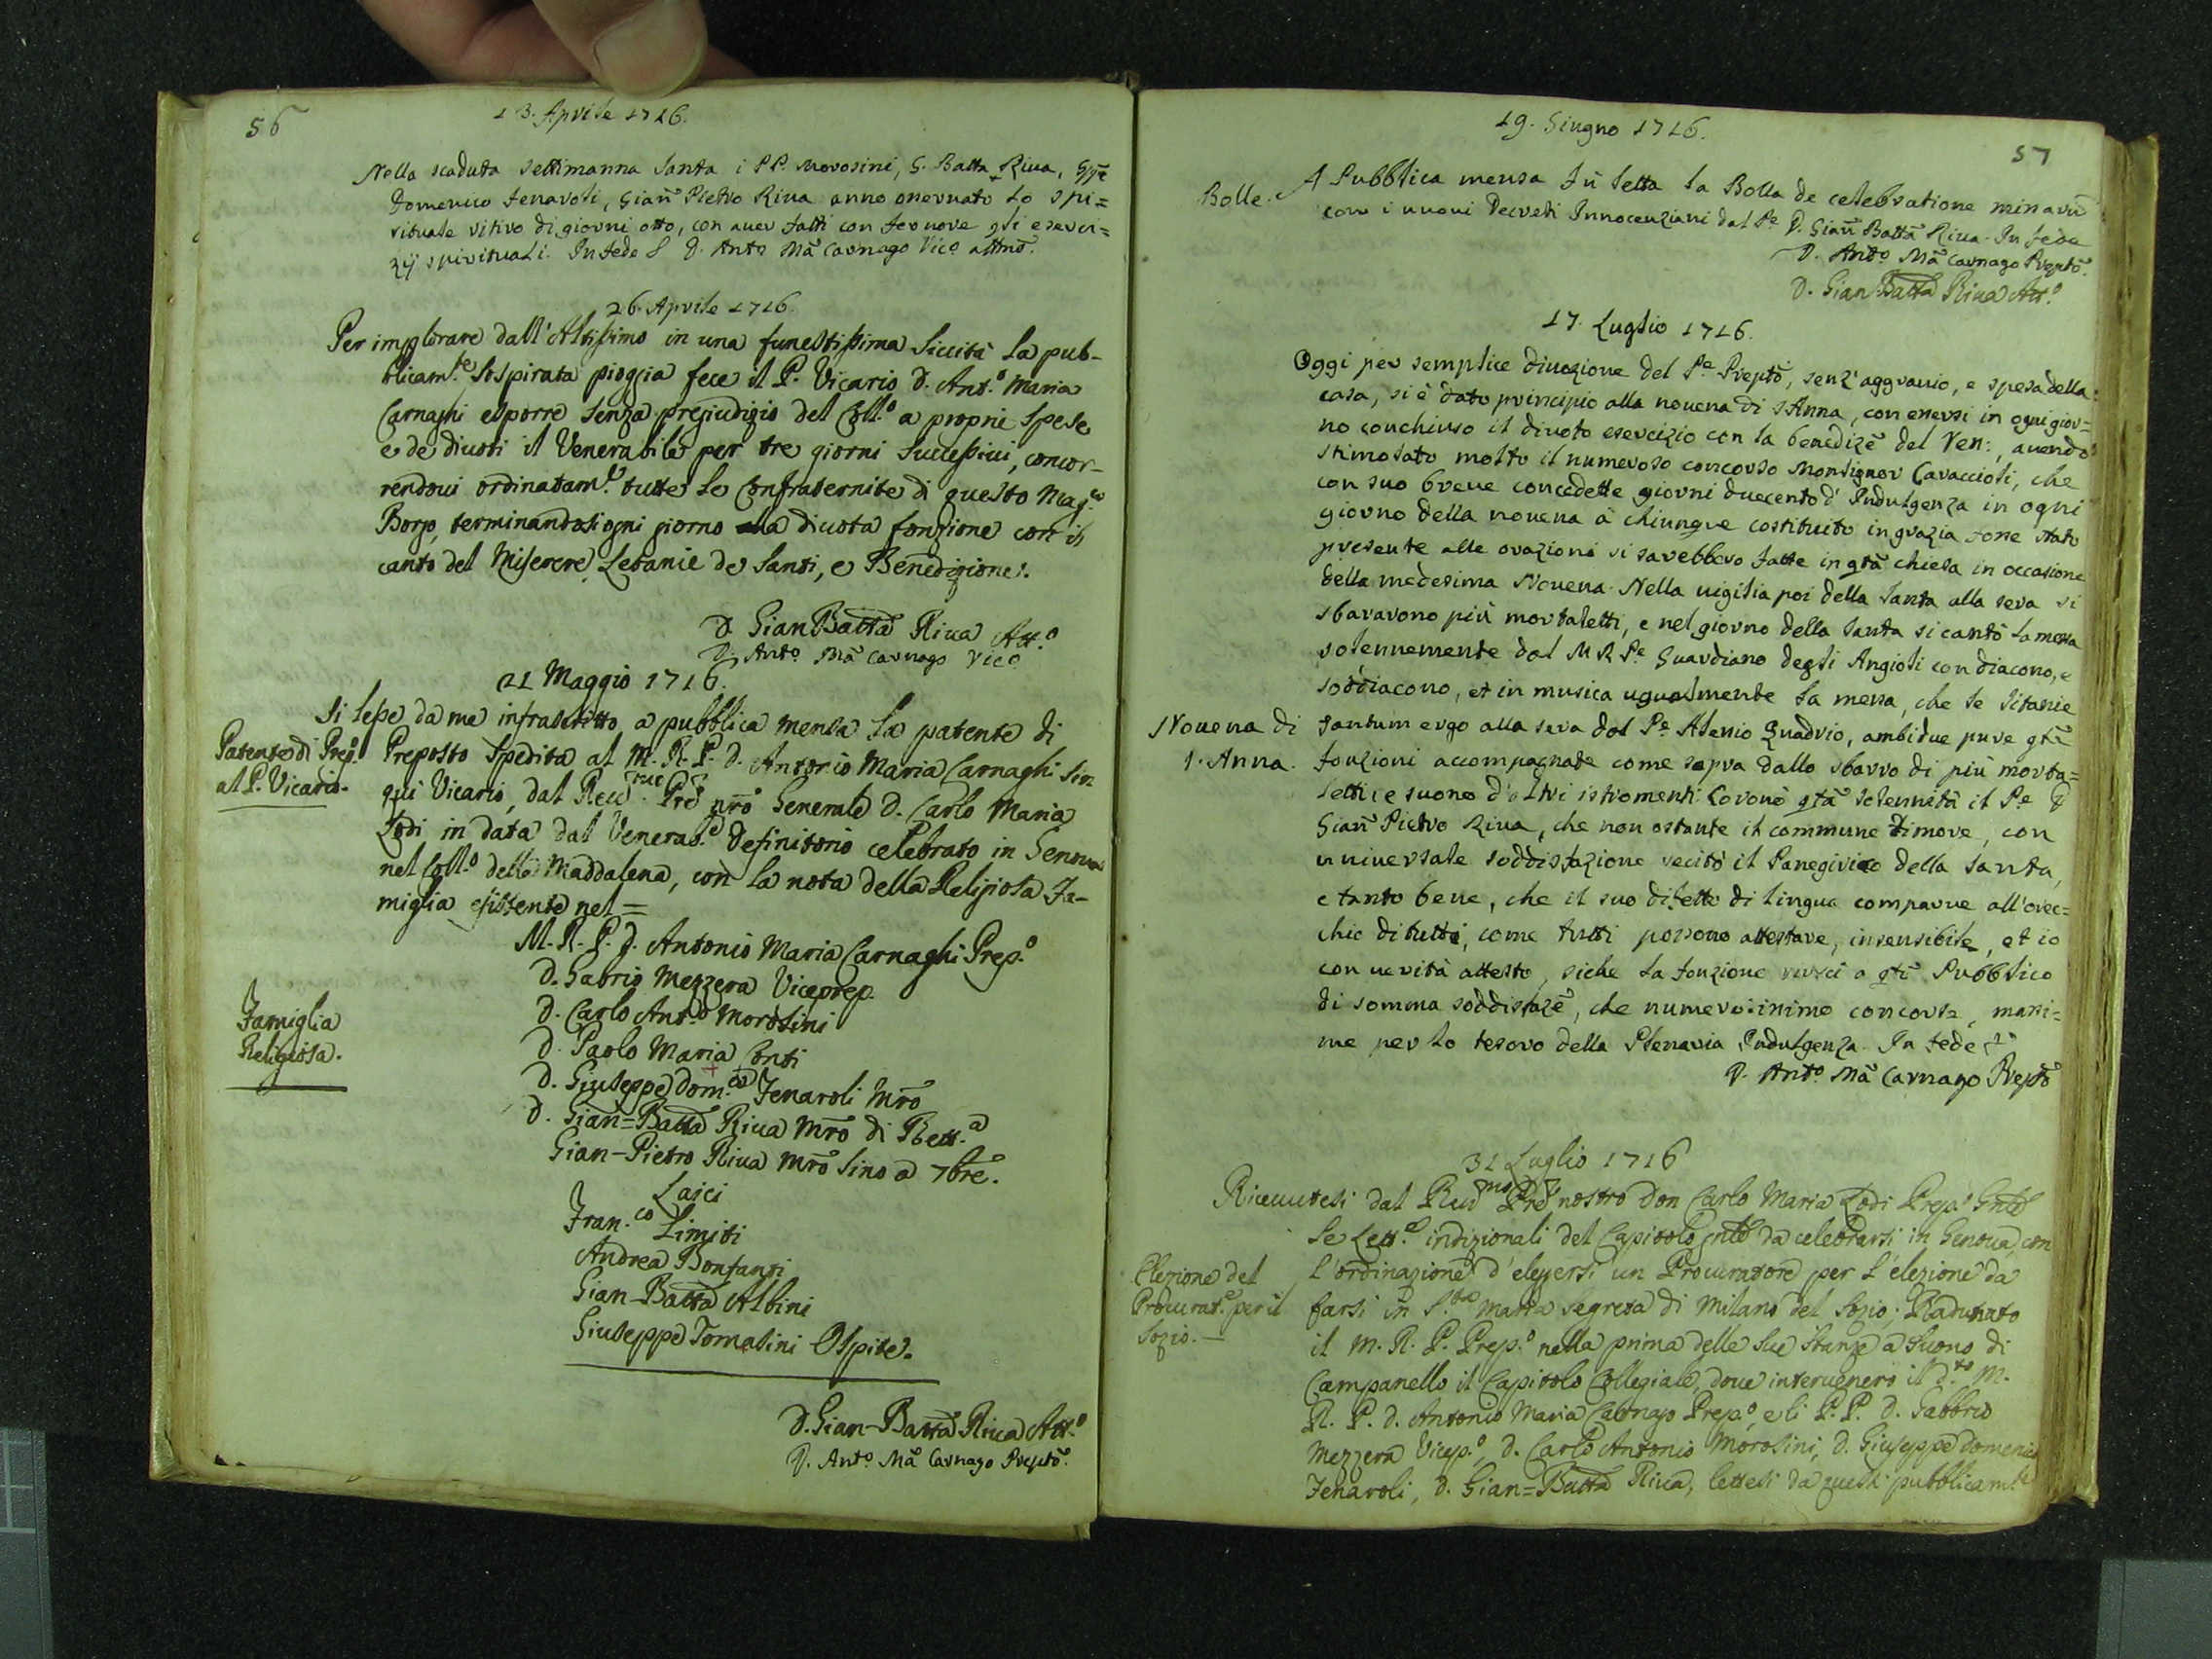 56
13. Aprile 1716.
Nella scaduta settimanna santa i PP. Morosini, G. Batta Riva, Gppe
Domenico Fenaroli, Gian Pietro Riva anno osservato lo spi=
rituale ritiro di giorni otto, con aver fatti con fervore gli eserci=
zij spirituali. In fede &
D. Anto Ma Carnago Vico attuo.
26. Aprile 1716.
Per implorare dall'Altissimo in una funestissima siccità la pub-
blicam.te sospirata pioggia fece il P. Vicario D. Ant.o Maria
Carnaghi esporre senza pregiudizio del Coll.o a proprie spese
e de divoti il Venerabile per tre giorni successivi, concor-
rendovi ordinatam.te tutte le Confraternite di questo Mag.co
Borgo, terminandosi ogni giorno la divota fonzione con il
canto del Miserere, Letanie de Santi, e Benedizione.
D. Gian Batta Riva Att.o
D. Anto Ma Carnago Vico
21 Maggio 1716.
Si lesse da me infrascritto a pubblica mensa la patente di
Patente di Prep.o
al P. Vicario.
Preposto spedita al M. R. P. D. Antonio Maria Carnaghi sin
qui Vicario, dal Rev.mo Pre nro Generale D. Carlo Maria
Lodi in data dal Venerab.e Definitorio celebrato in Genova
nel Coll.o della Maddalena, con la nota della Religiosa Fa-
miglia esistente nel =
M. R. P. D. Antonio Maria Carnaghi Prep.o
D. Gabrio Mezzera Viceprep.
D. Carlo Ant.o Morosini
D. Paolo Maria Conti
D. Giuseppe Dom.co Fenaroli Mro
D. Gian=Batta Riva Mro di Rett.a
Gian-Pietro Riva Mro sino a 7bre.
Famiglia
Religiosa.
Laici
Fran.co Limiti
Andrea Bonfanti
Gian-Batta Albini
Giuseppe Tomasini Ospite.
D. Gian-Batta Riva Att.o
D. Anto Ma Carnago Prepto.
57
19. Giugno 1716.
Bolle.
A Pubblica mensa fù letta la Bolla de celebratione missaru
con i nuovi Decreti Innocenziani dal Pe D. Gian Batta Riva. In fede
D. Anto Ma Carnago Prepto.
D. Gian Batta Riva Att.o
17. Luglio 1716.
Oggi per semplice divozione del Pe Prepto, senz'aggravio, e spesa della
casa, si è dato principio alla novena di S Anna, con essersi in ogni gior=
no conchiuso il divoto esercizio con la benedize del Ven:, avendo
stimolato molto il numeroso concorso Monsignor Caraccioli, che
con suo breve concedette giorni duecento d'Indulgenza in ogni
giorno della novena à chiunque costituito in grazia fosse stato
presente alle orazioni si sarebbero fatte in qta chiesa in occasione
della medesima Novena. Nella vigilia poi della Santa alla sera si
sbararono più mortaletti, e nel giorno della Santa si cantò la messa
solennemente dal M R Pe Guardiano degli Angioli con diacono, e
soddiacono, et in musica ugualmente la messa, che le litanie
Novena di
S. Anna.
tantum ergo alla sera dal Pe Alessio Quadrio, ambidue pure qte
fonzioni accompagnate come sopra dallo sbarro di più morta=
letti, e suono d'altri istromenti. Coronò qta solennità il Pe D
Gian Pietro Riva, che non ostante il commune timore, con
universale soddisfazione recitò il Panegirico della Santa,
e tanto bene, che il suo difetto di lingua comparve all'orec=
chio di tutti, come tutti possono attestare, insensibile, et io
con verità attesto, siche la fonzione riuscì a qto Pubblico
di somma soddisfaze, che numerosissimo concorse, massi=
me per lo tesoro della Plenaria Indulgenza. In fede &
D. Anto Ma Carnago Prepto
31 Luglio 1716
Ricevutesi dal Rev.mo Pre nostro Don Carlo Maria Lodi Prep.o Gnle
le Lett.e indizionali del Capitolo gnle da celebrarsi in Genova, con
l'ordinazione d'eleggersi un Procuratore per l'elezione da
Elezione del
Procurat.e per il
Sozio.
farsi in S.ta Maria Segreta di Milano del Sozio; Radunato
il M. R. P. Prep.o nella prima delle sue stanze a suono di
Campanello il Capitolo Collegiale, dove intervenero il d.to M.
R. P. D. Antonio Maria Carnago Prep.o, e li P. P. D. Gabbrio
Mezzera Vicep.o, D. Carlo Antonio Morosini, D. Giuseppe Domenico
Fenaroli, D. Gian=Batta Riva, lettesi da questi pubblicam.te